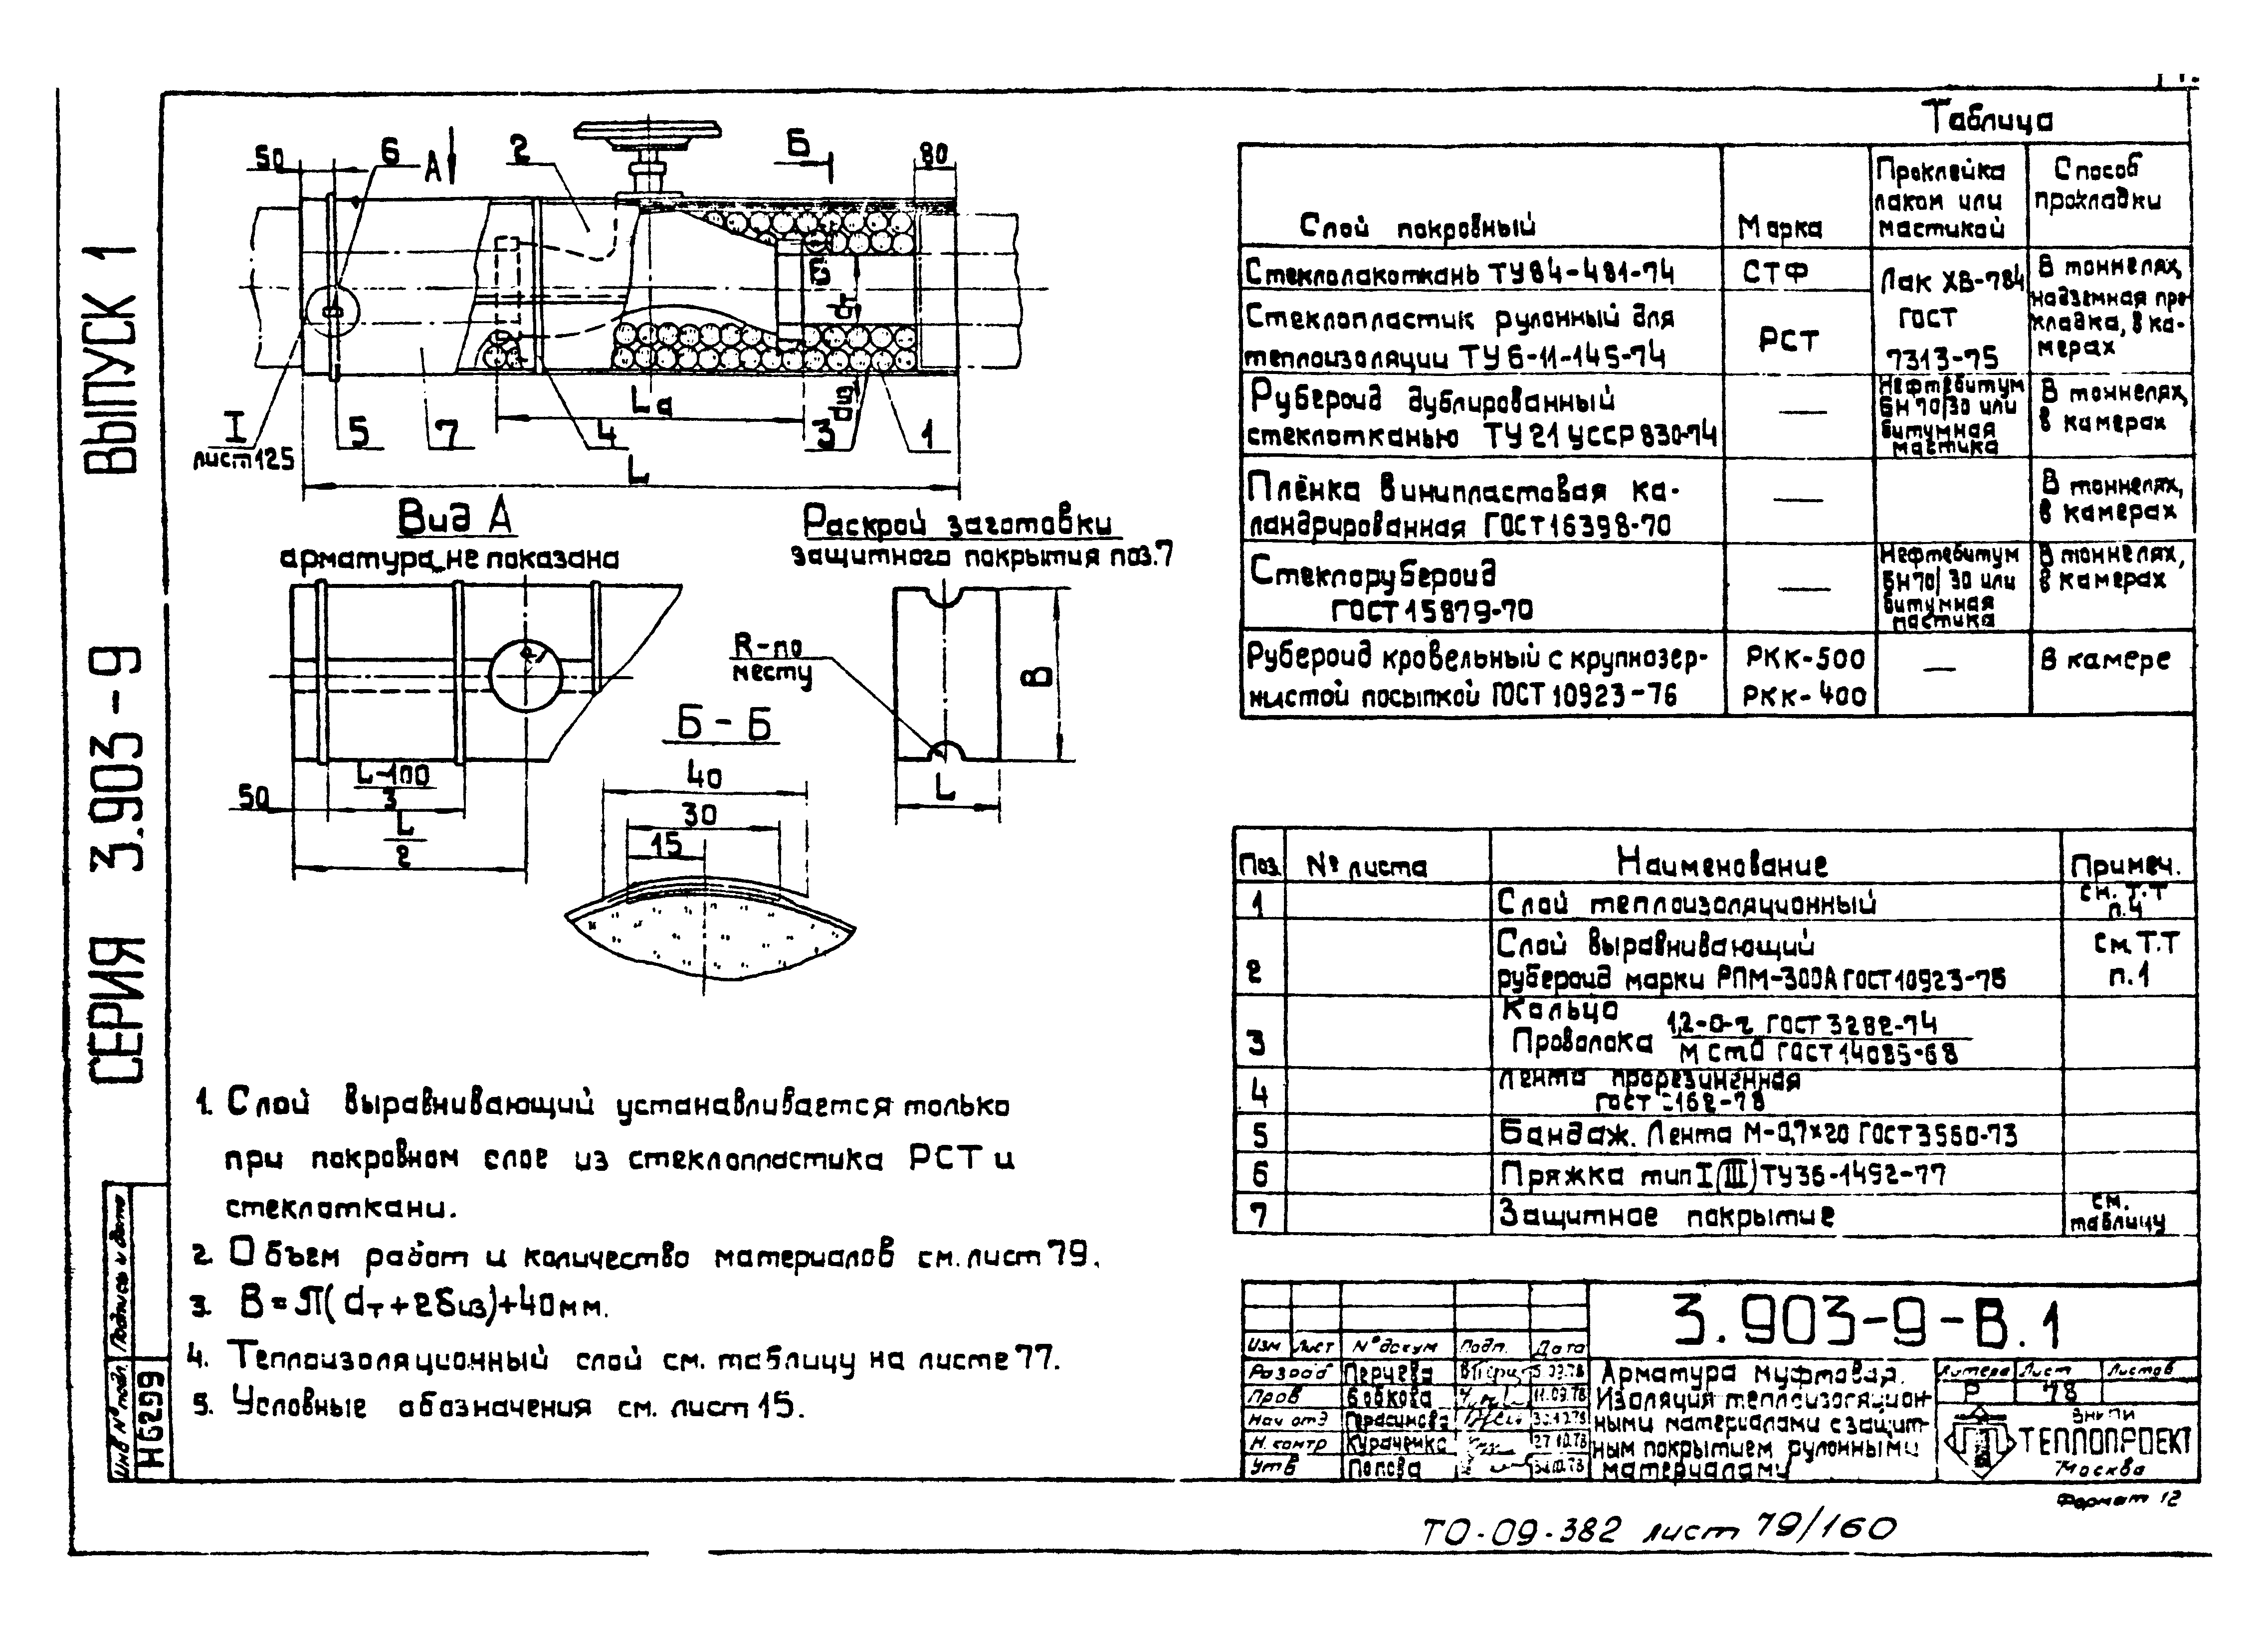 ВЫПУСК 1
СЕРИЯ 3.903-9
50
6
А
2
Б
80
Б
dт
dиз
Lа
I
лист 125
5
7
4
3
1
L
Вид А
арматура не показана
50
L-100
3
L
2
Раскрой заготовки
защитного покрытия поз.7
R-по
месту
В
L
Б-Б
40
30
15
1. Слой выравнивающий устанавливается только
при покровном слое из стеклопластика РСТ и
стеклоткани.
2. Объем работ и количество материалов см. лист 79.
3. В=π(dт+2δиз)+40мм.
4. Теплоизоляционный слой см. таблицу на листе 77.
5. Условные обозначения см. лист 15.
Таблица
Слой покровный
Марка
Проклейка
лаком или
мастикой
Способ
прокладки
Стеклолакоткань ТУ84-481-74
СТФ
Стеклопластик рулонный для
теплоизоляции ТУ6-11-145-74
РСТ
Лак ХВ-784
ГОСТ
7313-75
В тоннелях,
надземная про-
кладка, в ка-
мерах
Рубероид дублированный
стеклотканью ТУ21 УССР 830-74
—
Нефтебитум
БН70/30 или
битумная
мастика
В тоннелях,
в камерах
Плёнка винипластовая ка-
ландрированная ГОСТ 16398-70
—
В тоннелях,
в камерах
Стеклорубероид
ГОСТ 15879-70
—
Нефтебитум
БН70/30 или
битумная
мастика
В тоннелях,
в камерах
Рубероид кровельный с крупнозер-
нистой посыпкой ГОСТ 10923-76
РКК-500
РКК-400
—
В камере
Поз.
№ листа
Наименование
Примеч.
1
Слой теплоизоляционный
см. Т.Т
п.4
2
Слой выравнивающий
рубероид марки РПМ-300А ГОСТ 10923-76
см. Т.Т
п.1
3
Кольцо
Проволока 1,2-О-г ГОСТ 3282-74
МСт0 ГОСТ 14085-68
4
Лента прорезиненная
ГОСТ 2162-78
5
Бандаж. Лента М-0,7×20 ГОСТ 3560-73
6
Пряжка тип I (III) ТУ36-1492-77
7
Защитное покрытие
см.
таблицу
Инв № подл.
Подпись и дата
Н6299
3.903-9-В.1
Изм
Лист
№ докум
Подп.
Дата
Разраб
Перчева
5.09.78
Пров
Бобкова
11.09.78
Нач отд
Герасимова
Н.контр
Кураченко
27.10.78
Утв
Попова
Арматура муфтовая.
Изоляция теплоизоляцион-
ными материалами с защит-
ным покрытием рулонными
материалами
Литера
Лист
Листов
Р
78
ВНИПИ
ТЕПЛОПРОЕКТ
Москва
Формат 12
ТО-09-382 лист 79/160